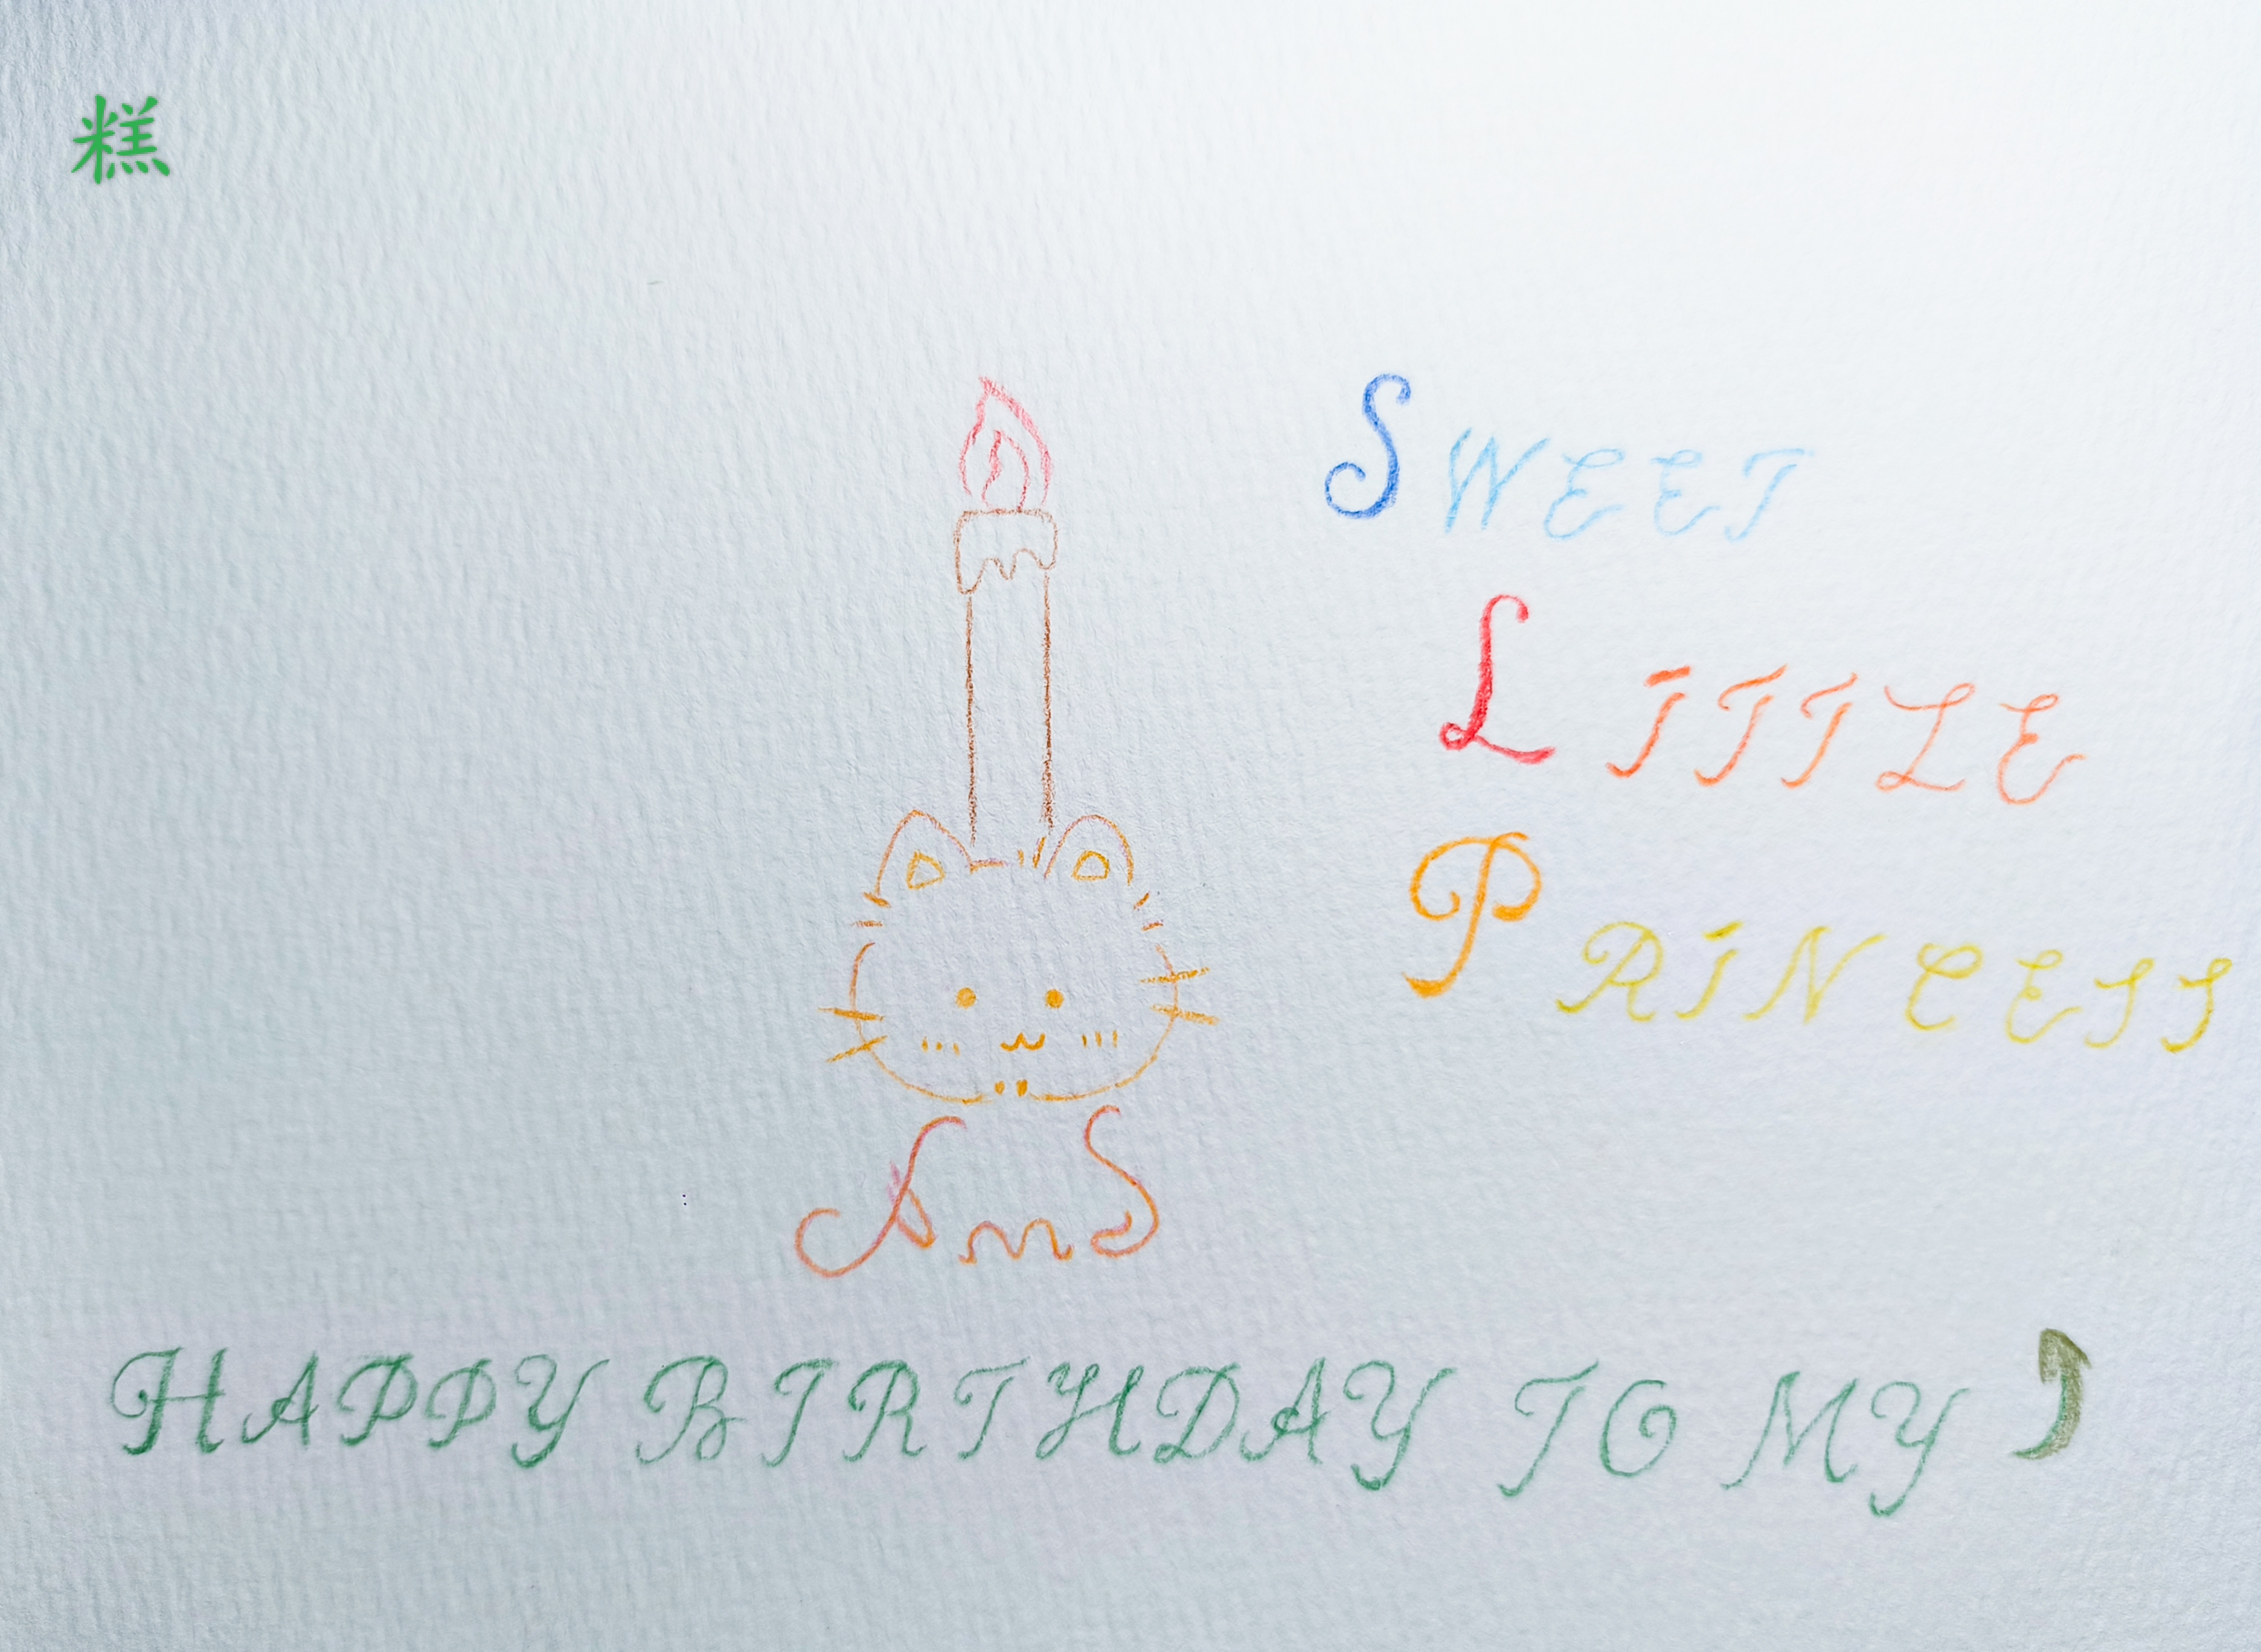 糕
SWEET
LITTLE
PRINCESS
AmS
HAPPY BIRTHDAY TO MY